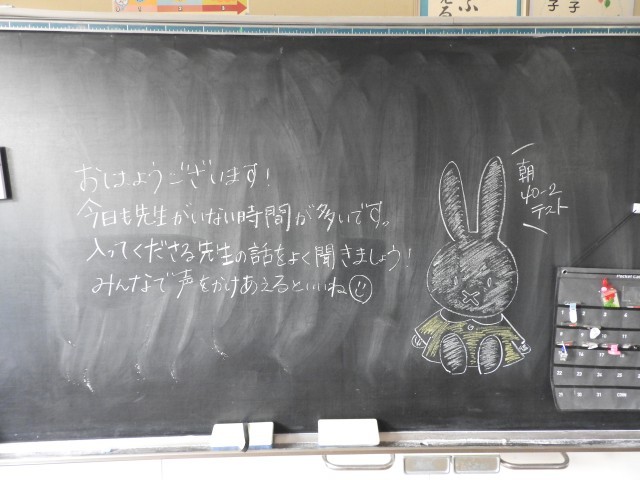 おはようございます!
今日も先生がいない時間が多いです。
入ってくださる先生の話をよく聞きましょう!
みんなで声をかけあえるといいね
朝
40-2
テスト